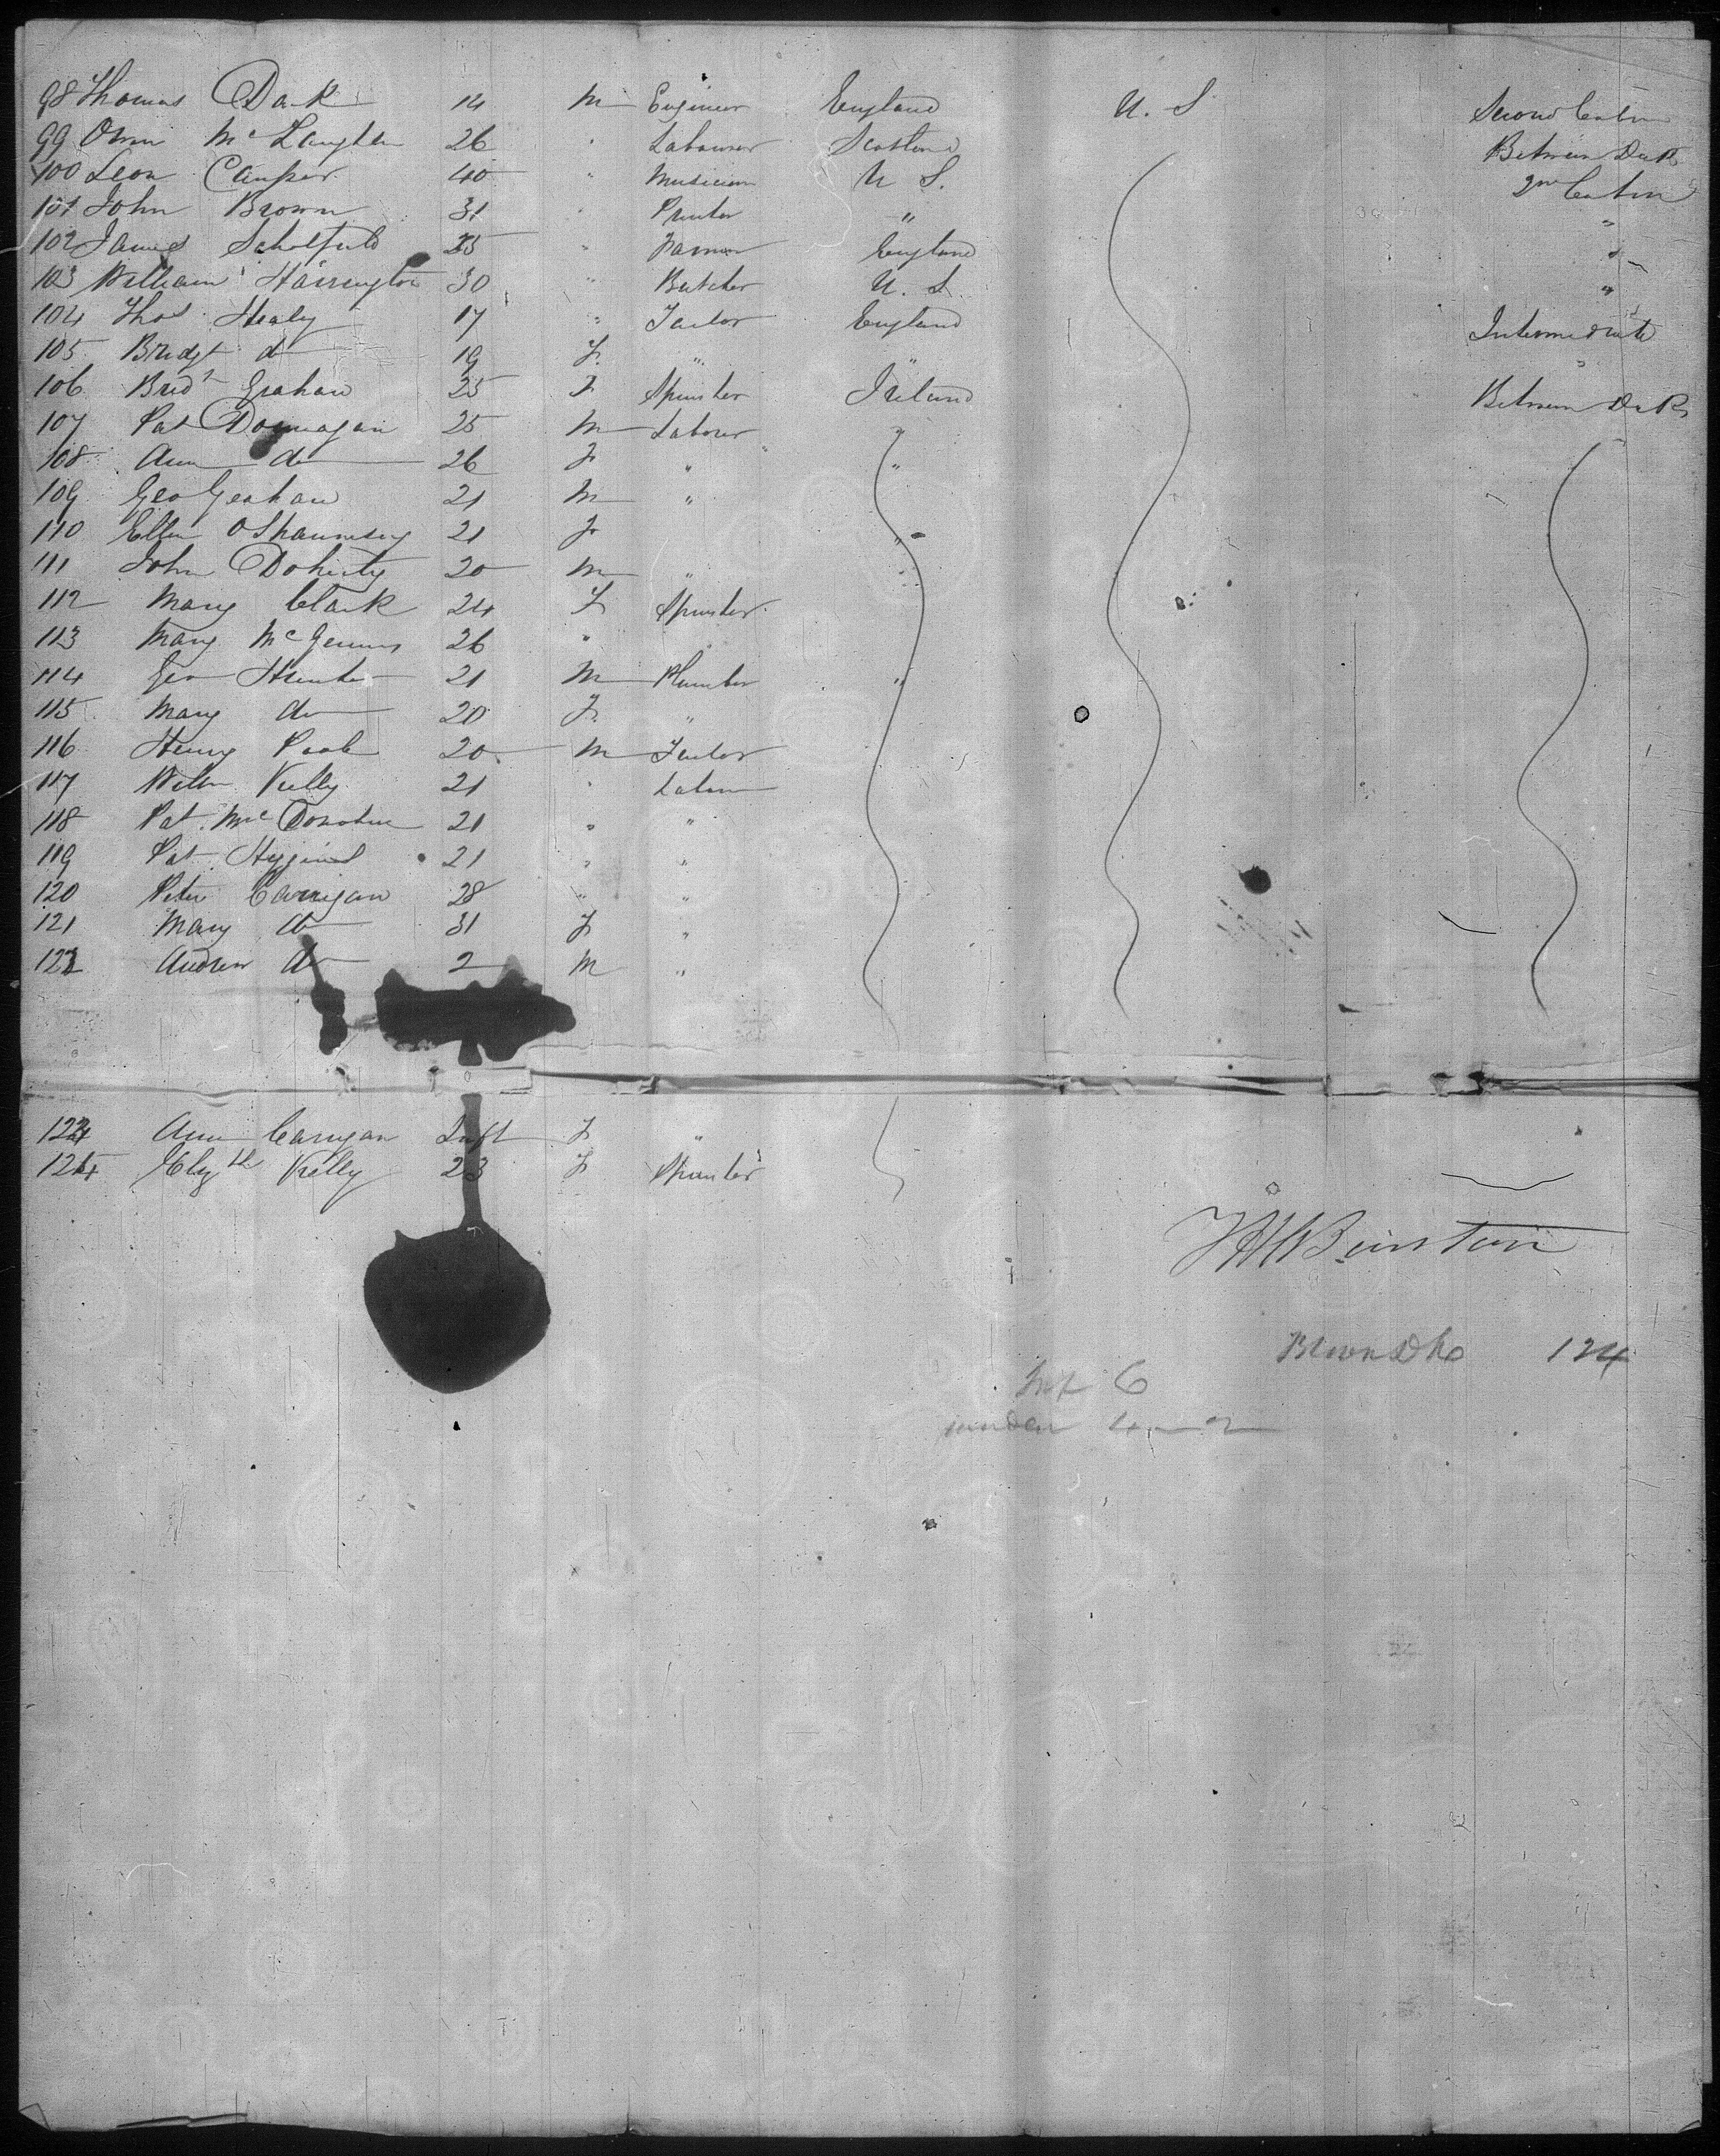 98 Thomas Dark 14 M Engineer England U. S Second Cabin
99 Owen McLaughlen 26 " Labourer Scotland Between Decks
100 Leon Camper 40 " Musician U S. 2nd Cabin
101 John Brown 31 " Printer " "
102 James Scholfield 35 " Farmer England "
103 William Harrington 30 " Butcher U. S. "
104 Thos Healy 17 " Tailor England Intermediate
105 Bridgt do 19 F. " " "
106 Bridt Grahan 25 F Spinster Ireland Between Decks
107 Pat Donnagan 25 M Labourer "
108 Ann do 26 F " "
109 Geo Grahan 21 M "
110 Ellen OShaunnesey 21 F " "
111 John Doherty 20 M " "
112 Mary Clark 24 F Spinster
113 Mary McGennis 26 "
114 Geo Hunter 21 M Plumber "
115 Mary do 20 F. "
116 Henry Poole 20 M Tailor
117 Willm Kelly 21 " Labour
118 Pat. McDonohue 21 " "
119 Pat Higgins 21 " "
120 Peter Carrigan 28 " "
121 Mary do 31 F "
122 Andrew do 2 M "
123 Ann Carrigan Inft F "
124 Elizth Kelly 23 F Spinster
Between Dks 124
Inf 6
under 1